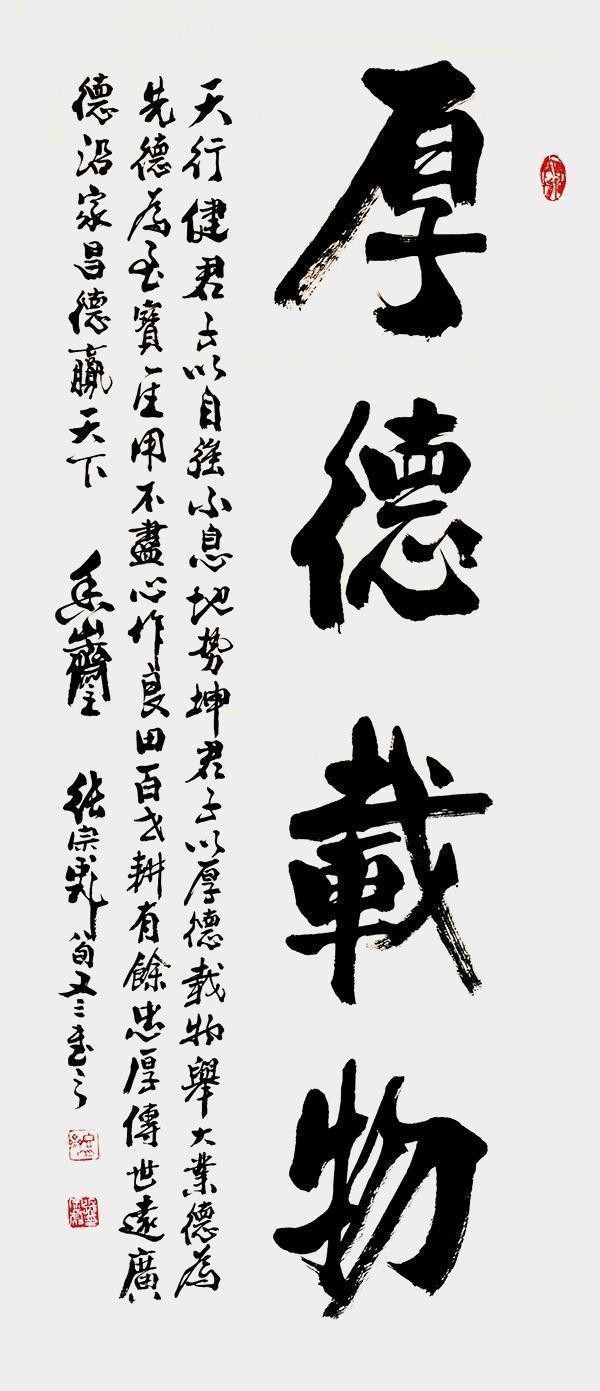 厚德載物
天行健君子以自強不息地势坤君子以厚德載物舉大業德為
先德為至寶一生用不盡心作良田百世耕有餘忠厚傳世遠廣
德沿家昌德贏天下 山齋主 張宗彪 旬又三書之